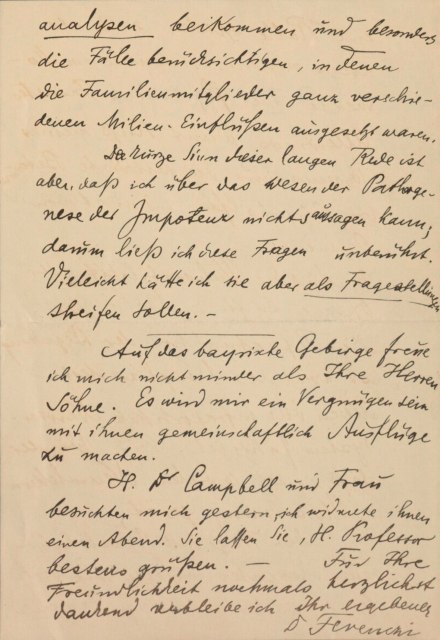 analysen beikommen und besonders
die Fälle berücksichtigen, in denen
die Familienmitglieder ganz verschie-
denen Milien-Einflüßen ausgesetzt waren.
Der kurze Sinn dieser langen Rede ist
aber, daß ich über das Wesen der Pathoge-
nese der Impotenz nichts aussagen kann;
darum ließ ich diese Fragen unberührt.
Vieleicht hätte ich sie aber als Fragestellungen
streifen sollen. –
Auf das bayrische Gebirge freue
ich mich nicht minder als Ihre Herren
Söhne. Es wird mir ein Vergnügen sein
mit ihnen gemeinschaftlich Ausflüge
zu machen.
H. Dr Campbell und Frau
besuchten mich gestern, ich widmete ihnen
einen Abend. Sie lassen Sie, H. Professor
bestens grüßen. — Für Ihre
Freundlichkeit nochmals herzlichst
dankend verbleibe ich Ihr ergebener
Dr Ferenczi